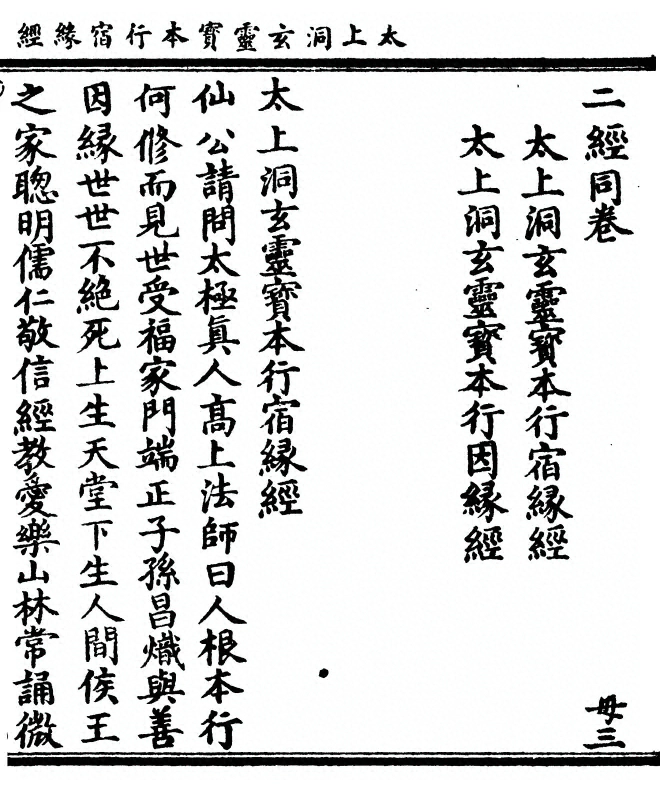 太上洞玄靈寶本行宿緣經
二經同卷 毋三
太上洞玄靈寶本行宿緣經
太上洞玄靈寶本行因緣經
太上洞玄靈寶本行宿緣經
仙公請問太極眞人高上法師曰人根本行
何修而見世受福家門端正子孫昌熾與善
因緣世世不絶死上生天堂下生人間侯王
之家聰明儒仁敬信經教愛樂山林常誦微